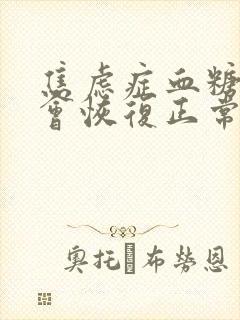 焦虑症血糖
會恢復正常
奥托·布勞恩